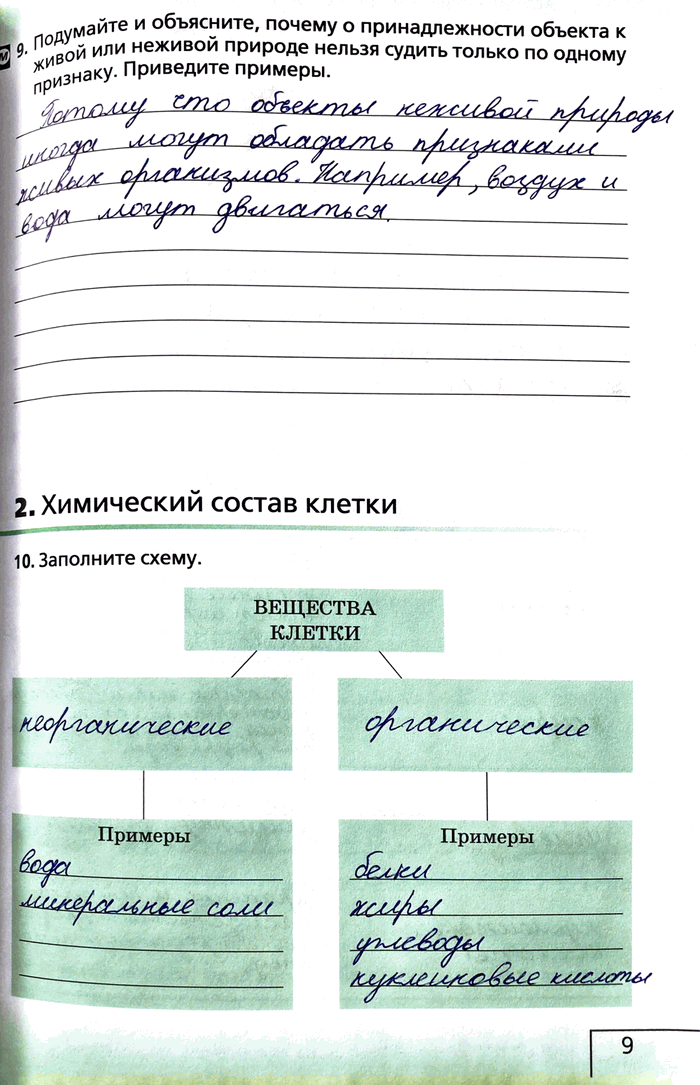 9. Подумайте и объясните, почему о принадлежности объекта к
живой или неживой природе нельзя судить только по одному
признаку. Приведите примеры.
Потому что объекты неживой природы
иногда могут обладать признаками
живых организмов. Например, воздух и
вода могут двигаться.
2. Химический состав клетки
10. Заполните схему.
ВЕЩЕСТВА
КЛЕТКИ
неорганические
органические
Примеры
вода
минеральные соли
Примеры
белки
жиры
углеводы
нуклеиновые кислоты
9